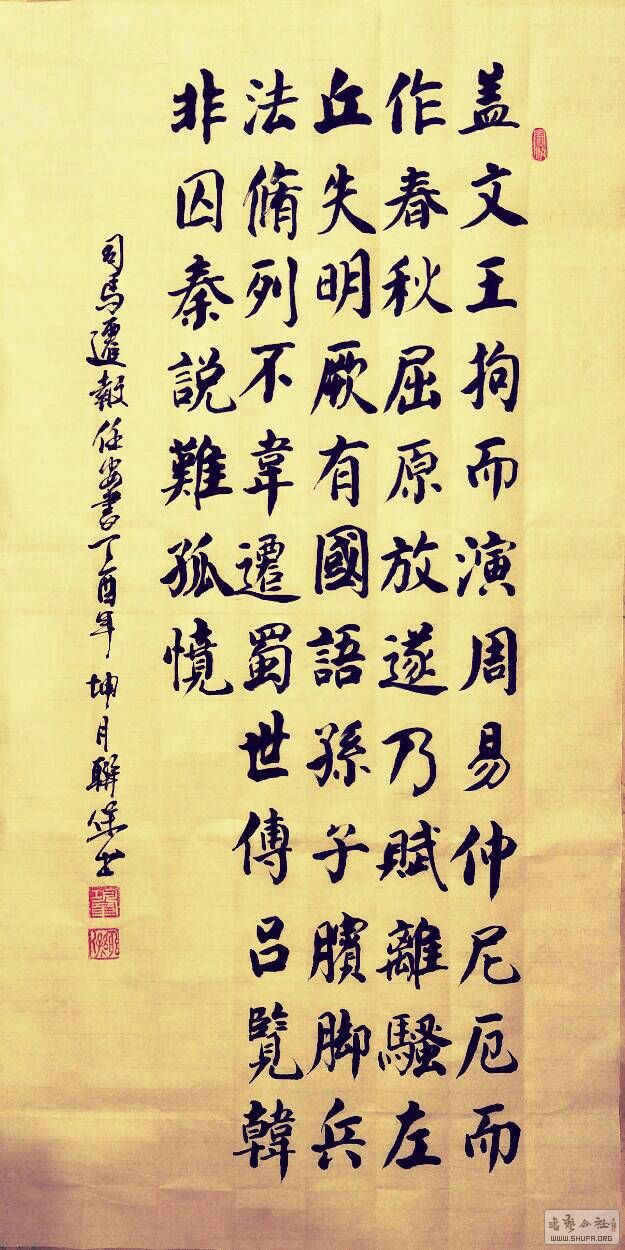 盖文王拘而演周易仲尼厄而
作春秋屈原放逐乃賦離騷左
丘失明厥有國語孫子臏脚兵
法脩列不韋遷蜀世傳吕覽韓
非囚秦説難孤憤
司馬遷報任安書丁酉年坤月聯保书
WWW.SHUFA.ORG